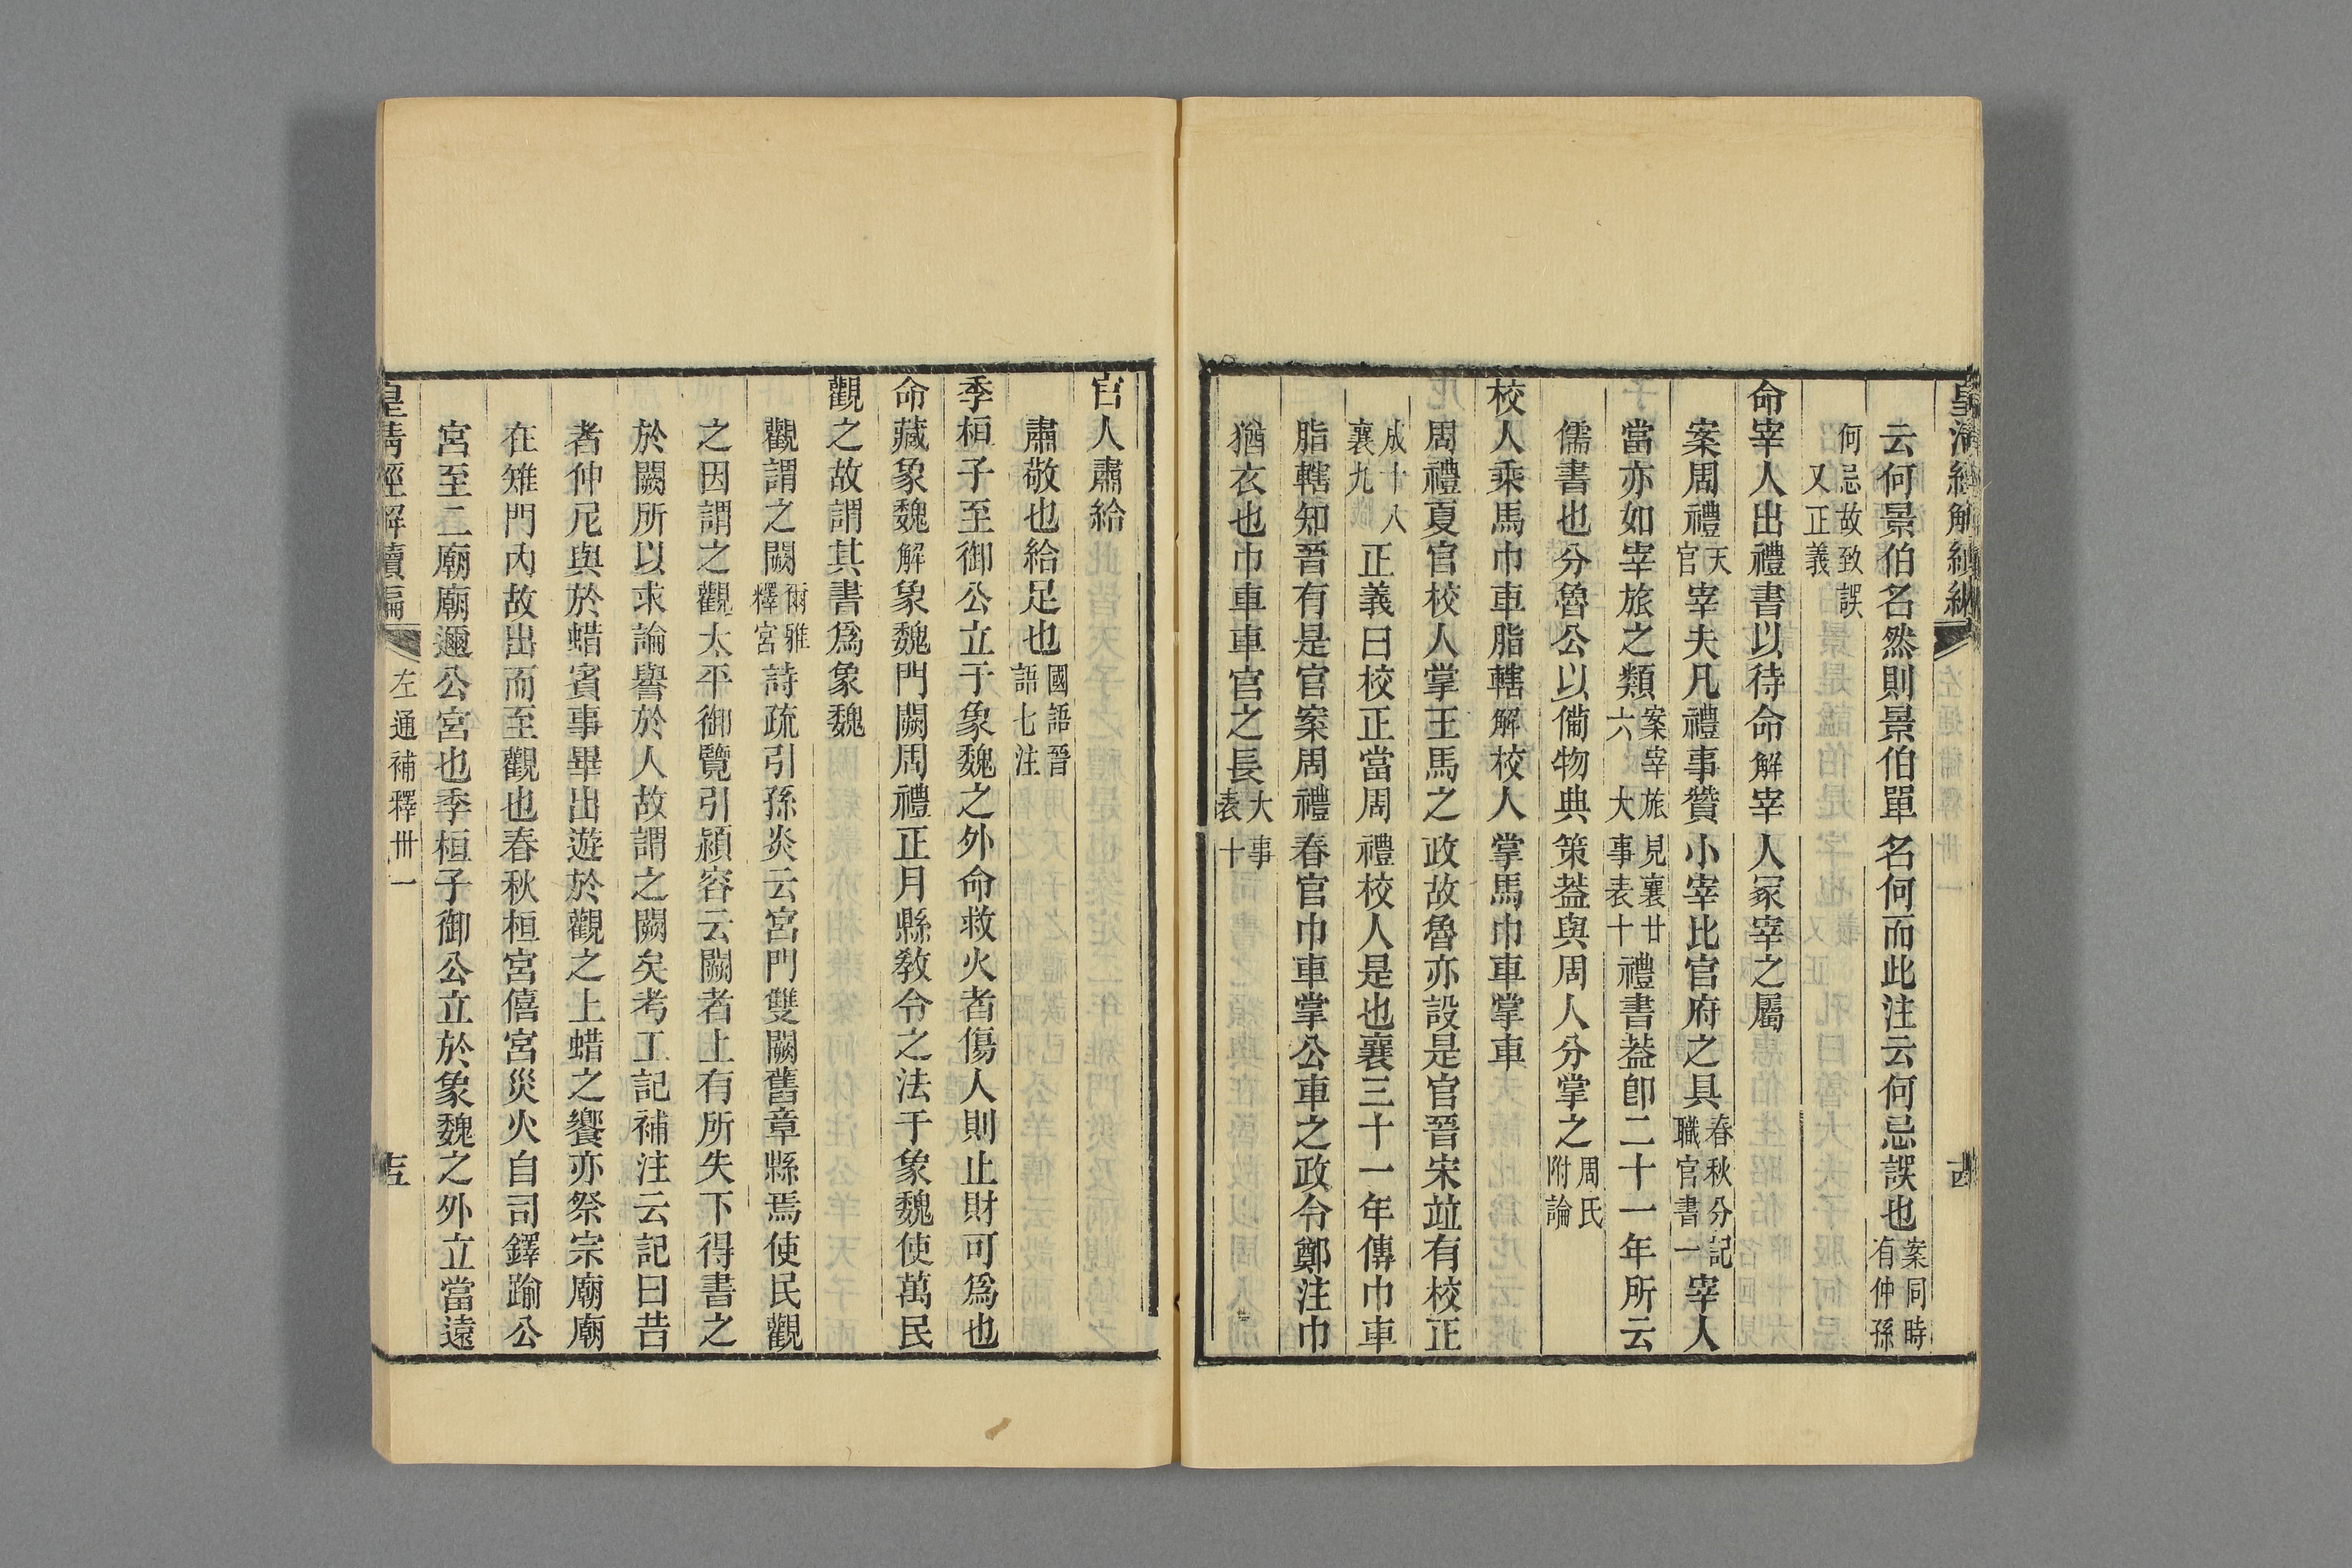 皇清經解續編
云何景伯名然則景伯單名何而此注云何忌誤也案同時有仲孫
何忌故致誤又正義
命宰人出禮書以待命解宰人冢宰之屬
案周禮天官宰夫凡禮事贊小宰比官府之具春秋分記職官書一宰人
當亦如宰旅之類案宰旅見襄廿六大事表十禮書葢卽二十一年所云
儒書也分魯公以僃物典策葢與周人分掌之周氏附論
校人乘馬巾車脂轄解校人掌馬巾車掌車
周禮夏官校人掌王馬之政故魯亦設是官晉宋竝有校正
成十八襄九正義曰校正當周禮校人是也襄三十一年傳巾車
脂轄知晉有是官案周禮春官巾車掌公車之政令鄭注巾
猶衣也巾車車官之長大事表十
官人肅給
肅敬也給足也國語晉語七注
季桓子至御公立于象魏之外命救火者傷人則止財可爲也
命藏象魏解象魏門闕周禮正月縣敎令之法于象魏使萬民
觀之故謂其書爲象魏
觀謂之闕爾雅釋宮詩疏引孫炎云宮門雙闕舊章縣焉使民觀
之因謂之觀太平御覽引穎容云闕者上有所失下得書之
於闕所以求論譽於人故謂之闕矣考工記補注云記曰昔
者仲尼與於蜡賓事畢出遊於觀之上蜡之饗亦祭宗廟廟
在雉門內故出而至觀也春秋桓宮僖宮災火自司鐸踰公
宮至二廟廟邇公宮也季桓子御公立於象魏之外立當遠
皇清經解續編 左通補釋卅一 十五